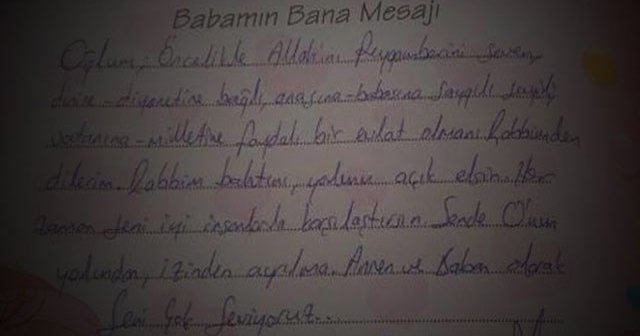 Babamın Bana Mesajı
Oğlum, Öncelikle Allah'ını Peygamberini seven,
dinine-diyanetine bağlı, anasına-babasına saygılı sevgili,
vatanına-milletine faydalı bir evlat olmanı Rabbimden
dilerim. Rabbim bahtını, yolunu açık etsin. Her
zaman seni iyi insanlarla karşılaştırsın. Sende O'nun
yolundan, izinden ayrılma. Annen ve Baban olarak
Seni Çok Seviyoruz...